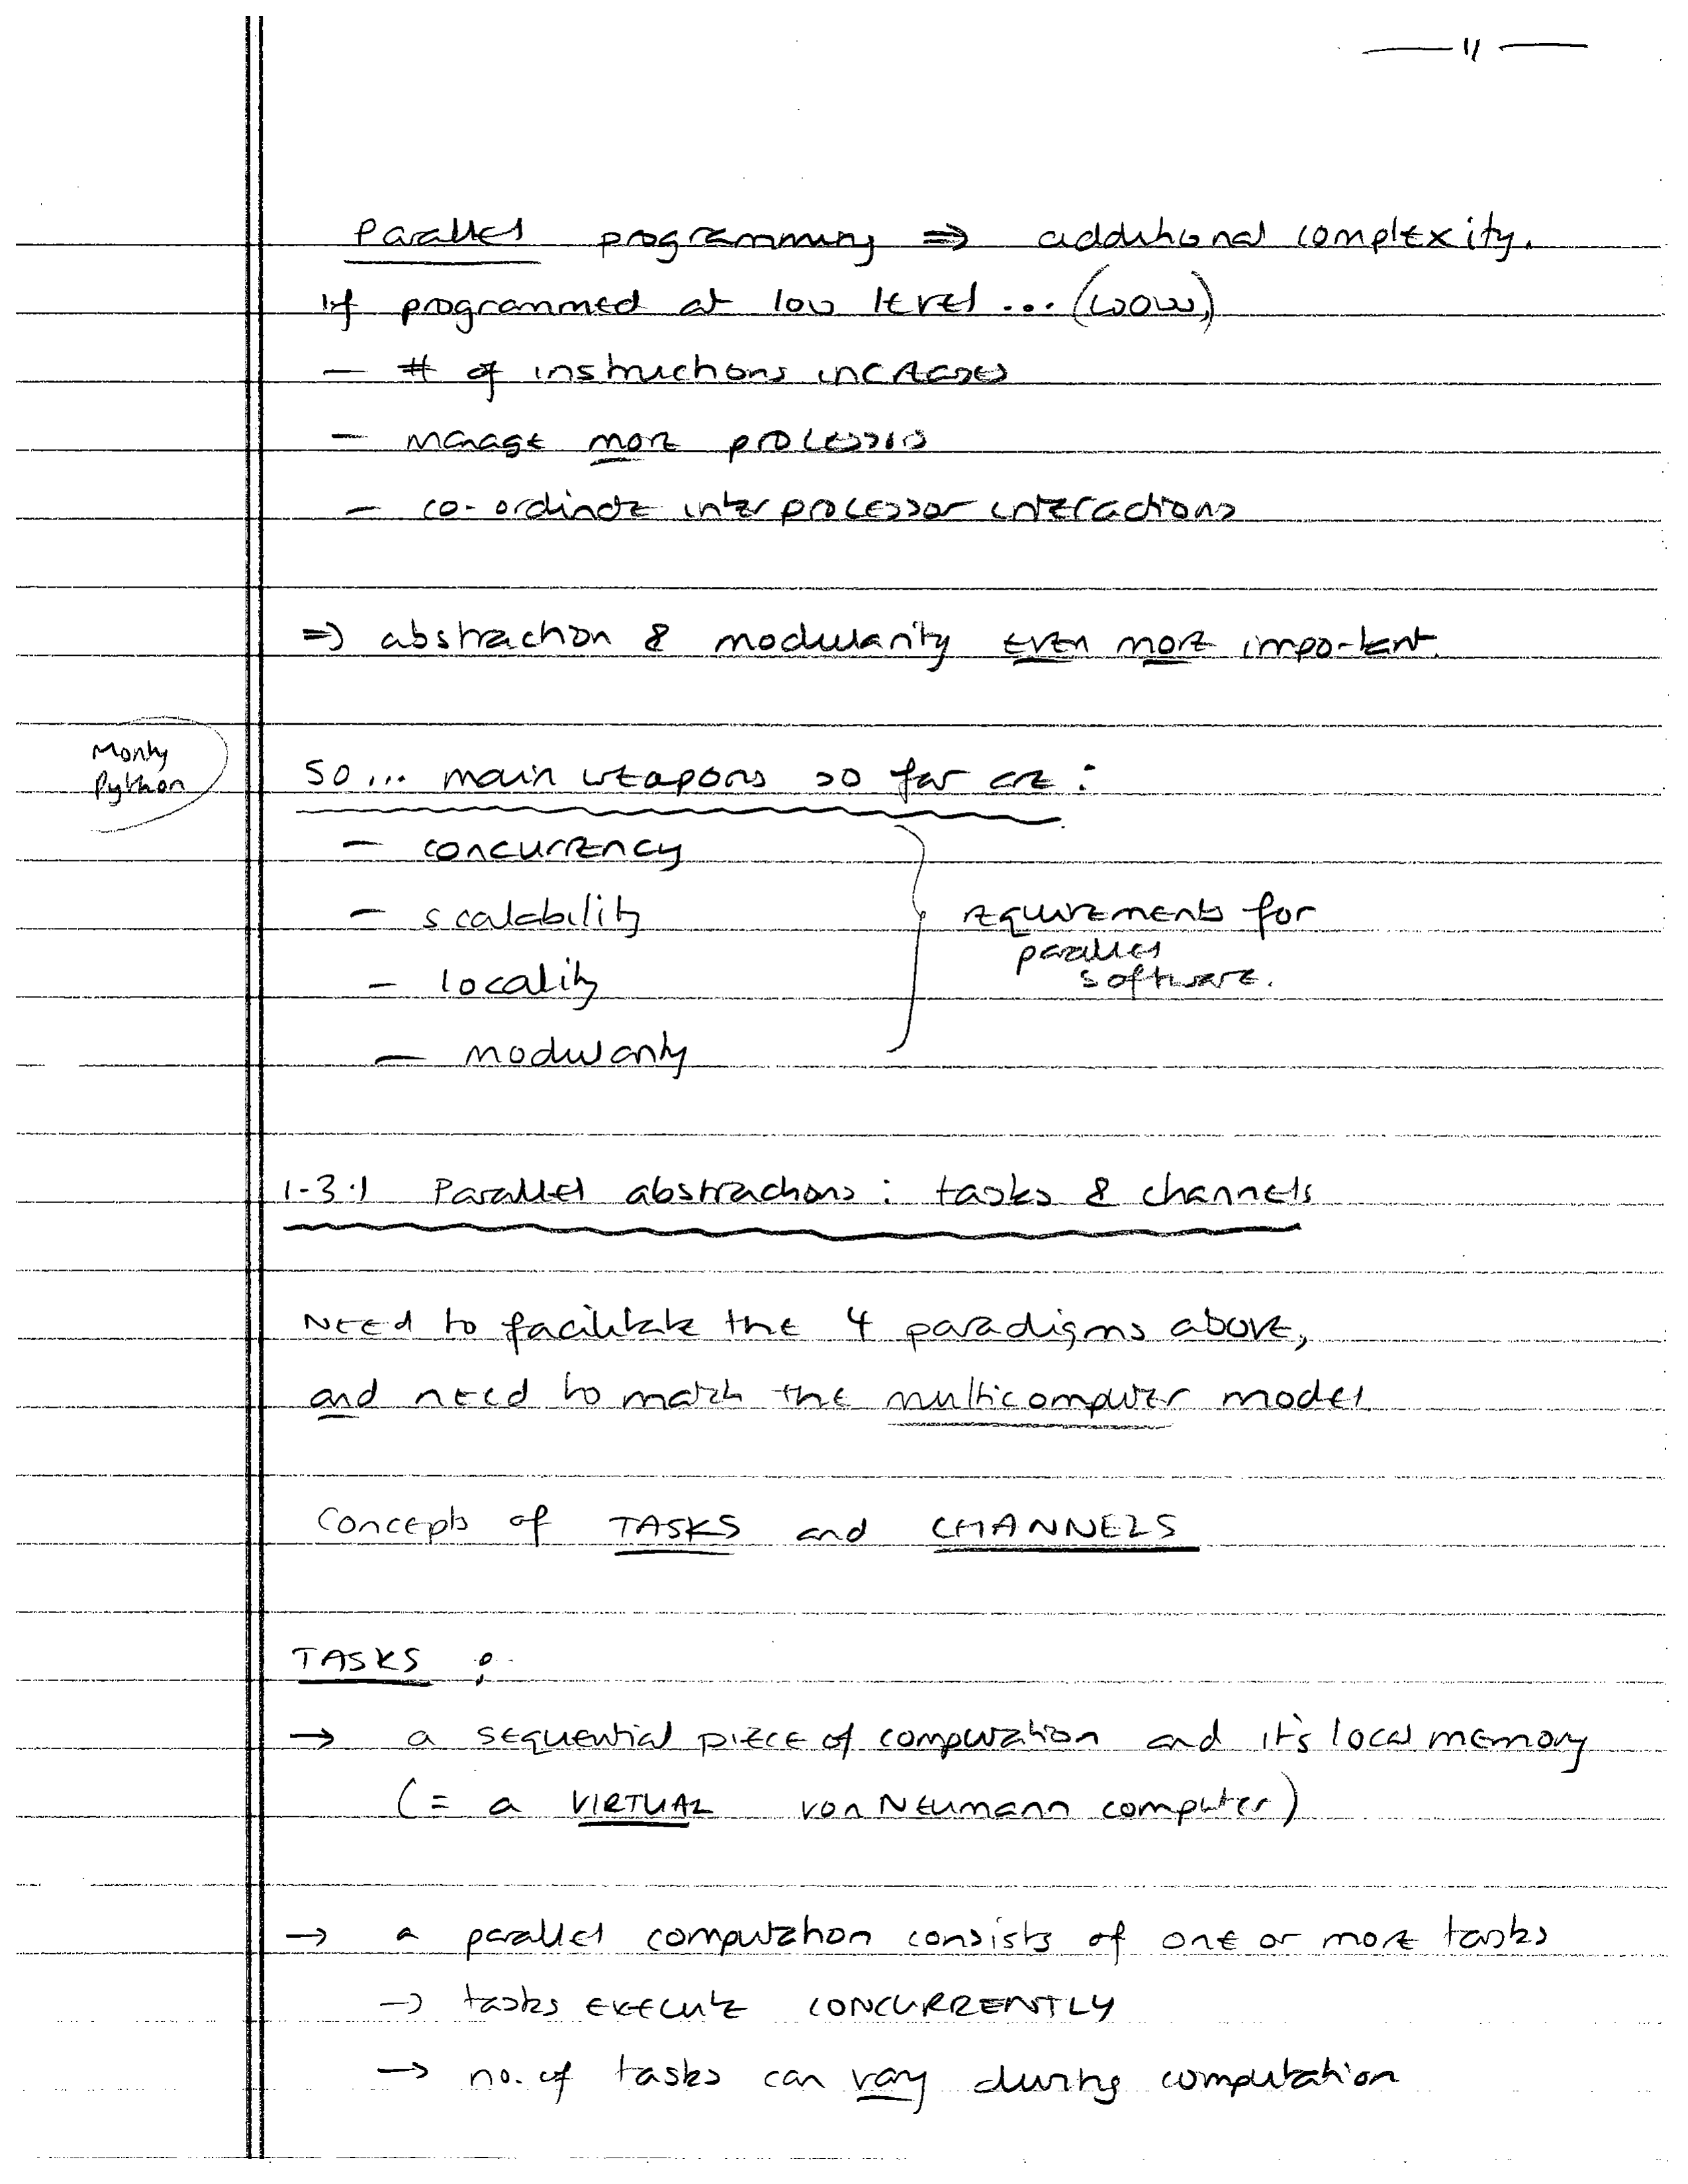 — 11 —
Parallel programming ⇒ additional complexity.
If programmed at low level ... (wow,)
— # of instructions increases
— manage more processors
— co-ordinate interprocessor interactions
⇒ abstraction & modularity even more important.
Monty
Python
So... main weapons so far are:
— concurrency
— scalability
— locality
— modularity
requirements for
parallel
software.
1.3.1 Parallel abstractions: tasks & channels
Need to facilitate the 4 paradigms above,
and need to match the multicomputer model
Concepts of TASKS and CHANNELS
TASKS :
→ a sequential piece of computation and it's local memory
(= a VIRTUAL von Neumann computer)
→ a parallel computation consists of one or more tasks
→ tasks execute CONCURRENTLY
→ no. of tasks can vary during computation